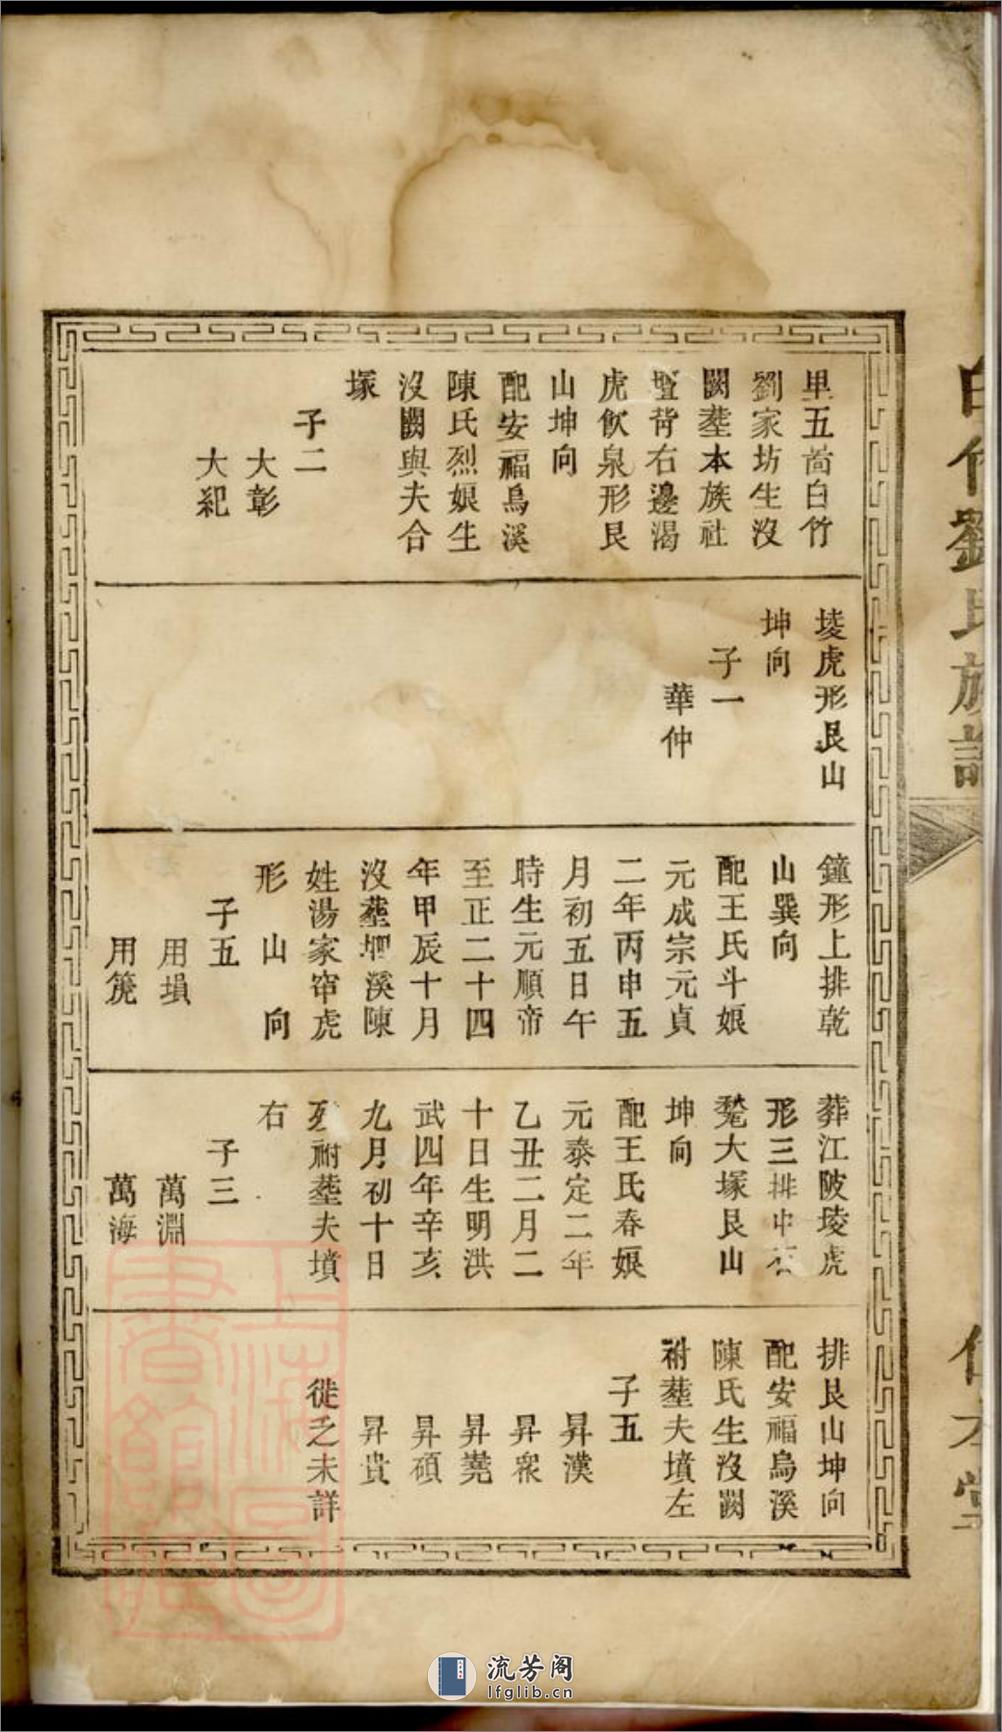 劉氏族譜
里五啚白竹
劉家坊生沒
闕塟本族社
壇背右邊渴
虎飲泉形艮
山坤向
配安福烏溪
陳氏烈娘生
沒闕與夫合
塚
子二
大彰
大紀
堎虎形艮山
坤向
子一
華仲
鐘形上排乾
山巽向
配王氏斗娘
元成宗元貞
二年丙申五
月初五日午
時生元順帝
至正二十四
年甲辰十月
沒塟溪陳
姓湯家窂虎
形山向
子五
用塤
用箎
葬江陂堎虎
形三排中
大塚艮山
坤向
配王氏春娘
元泰定二年
乙丑二月二
十日生明洪
武四年辛亥
九月初十日
歿祔塟夫墳
右
子三
萬淵
萬海
排艮山坤向
配安福烏溪
陳氏生沒闕
祔塟夫墳左
子五
昇漢
昇衆
昇蕘
昇碩
昇貴
徙乏未詳
上海圖
書館藏
流芳阁
lfglib.cn